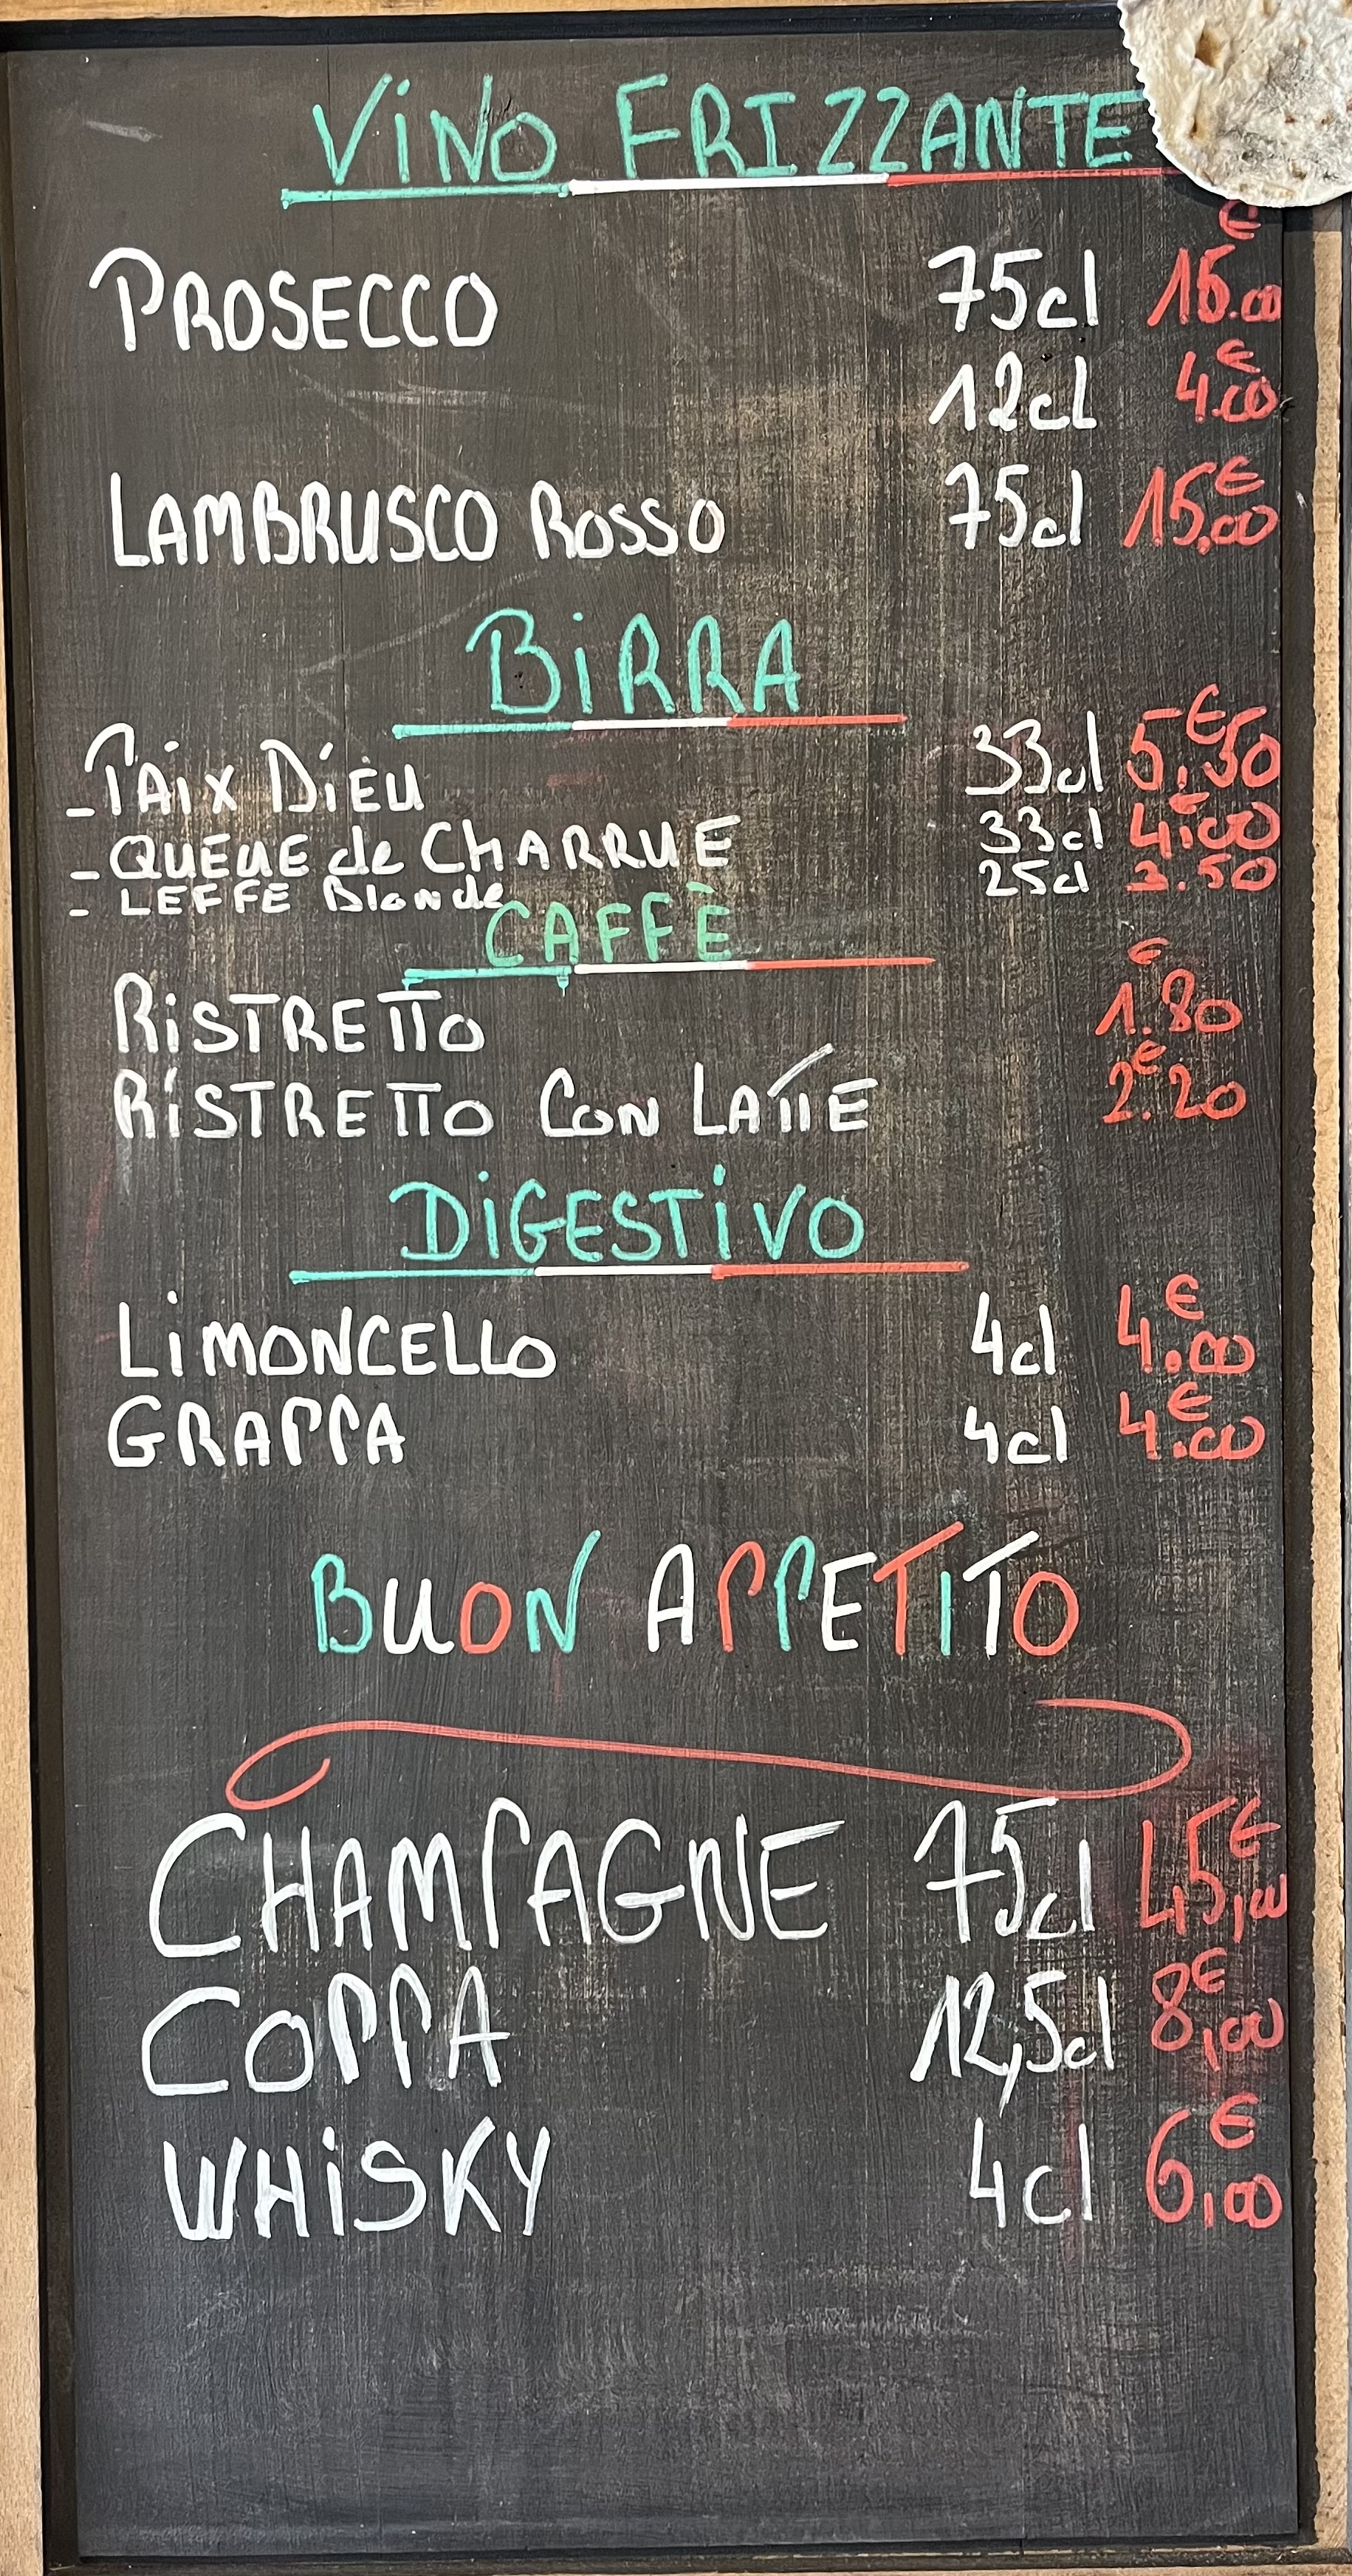 VINO FRIZZANTE
PROSECCO 75cl €
12cl 4.00 €
LAMBRUSCO ROSSO 75cl 15,00 €
BIRRA
- PAIX DIEU 33cl 5,50 €
- QUEUE de CHARRUE 33cl 4.00 €
- LEFFE Blonde 25cl
CAFFÈ
RISTRETTO 1.80 €
RISTRETTO CON LATTE 2.20 €
DIGESTIVO
LIMONCELLO 4cl 4.00 €
GRAPPA 4cl 4.00 €
BUON APPETITO
CHAMPAGNE 75cl 45,00 €
COPPA 12,5cl 8,00 €
WHISKY 4cl 6,00 €